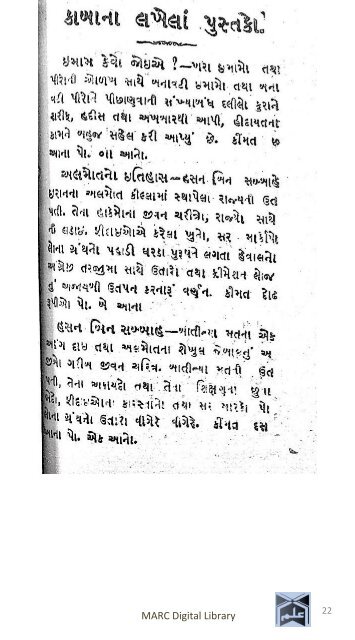 કાબાના લખેલાં પુસ્તકો.
ઇમામ કેવો જોઇએ ?—ખરા ઇમામો તથા
પીરોની ઓળખ સાથે બનાવટી ઇમામો તથા બના
વટી પીરોને પીછાણવાની સંખ્યાબંધ દલીલો કુરાને
શરીફ, હદીસ તથા અખબારથી આપી, હીદાયતના
કામને બહુજ સહેલ કરી આપ્યું છે. કીંમત છ
આના પો. ૦ાા આનો.
અલમોતનો ઇતિહાસ—હસન બિન સબ્બાહે
ઇરાનના અલમોત કીલ્લામાં સ્થાપેલા રાજ્યની ઉત
પતી. તેના હાકેમોના જીવન ચરીત્રો, રાજ્યો સાથે
ની લડાઇ. શીદાઇઓએ કરેલા ખુનો, સર માર્કોપો
લોના ગ્રંથનો પહાડી ઘરડા પુરૂષને લગતા હેવાલનો
અંગ્રેજી તરજુમા સાથે ઉતારો તથા ક્રીમેશન લોજ
નું અજાયબી ઉતપન કરનારૂં વર્ણન. કીમત દોઢ
રૂપીઓ પો. બે આના
હસન બિન સબ્બાહ—બાતીન્યા મતના એક
દાઇ તથા અલમોતના શેખુલ જેબાલનું અ
જીવન ચરિત્ર. બાતીન્યા મતની ઉત
પતી, તેના અકાયદો તથા તેના શિક્ષણના છુપા
ભેદો, શીદાઇઓના કારસ્તાનો તથા સર મારકો પો
લોના ગ્રંથનો ઉતારો વીગેરે વીગેરે. કીંમત દસ
આના પો. એક આનો.
MARC Digital Library
22